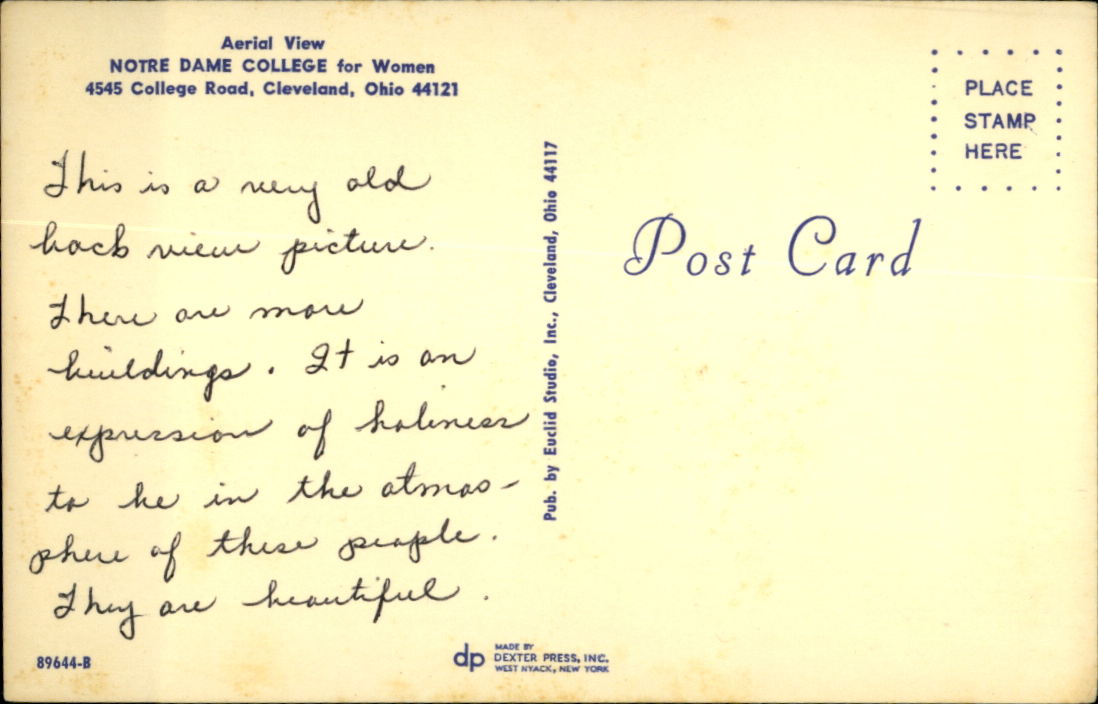 Aerial View
NOTRE DAME COLLEGE for Women
4545 College Road, Cleveland, Ohio 44121
This is a very old
back view picture.
There are more
buildings. It is an
expression of holiness
to be in the atmos-
phere of these people.
They are beautiful.
89644-B
Pub. by Euclid Studio, Inc., Cleveland, Ohio 44117
dp
MADE BY
DEXTER PRESS, INC.
WEST NYACK, NEW YORK
PLACE
STAMP
HERE
Post Card